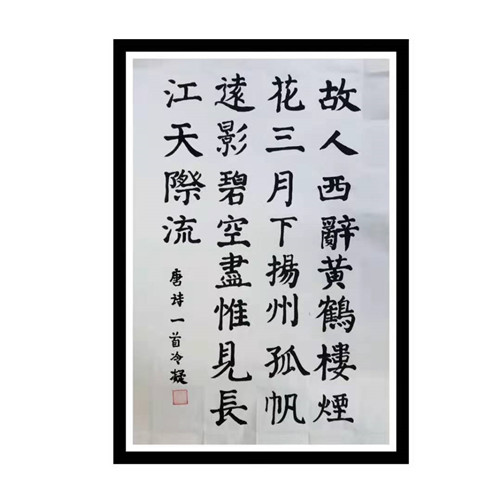 故人西辭黃鶴樓煙
花三月下揚州孤帆
遠影碧空盡惟見長
江天際流
唐诗一首冷凝